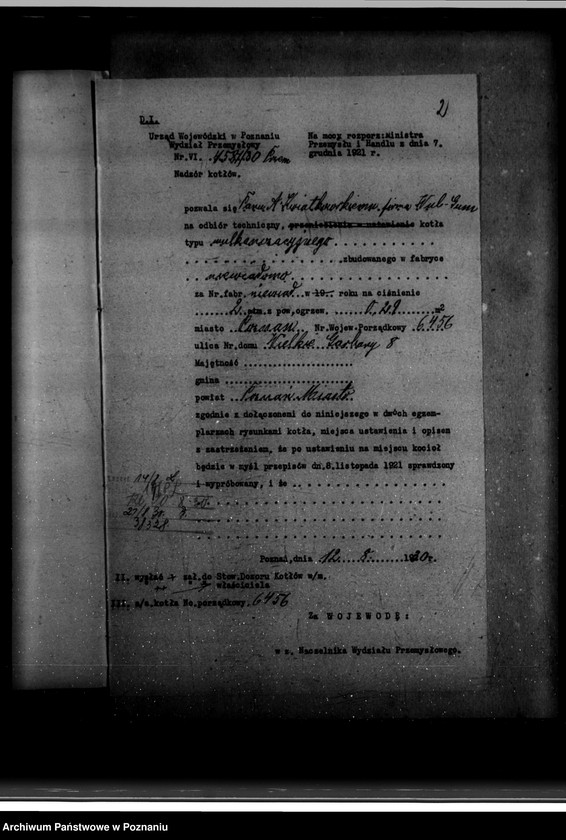 2)
D.I.
Urząd Wojewódzki w Poznaniu
Wydział Przemysłowy
Nr.VI.
Nadzór kotłów.
Na mocy rozporz.Ministra
Przemysłu i Handlu z dnia 7.
grudnia 1921 r.
pozwala się Panu A. Kwiatkowskiemu firma
na odbiór techniczny, przeniesienie w ustawienie kotła
typu wulkanizacyjnego
zbudowanego w fabryce
niewiadomo
za Nr.fabr. niewiad. w 19... roku na ciśnienie
2 atm.z pow.ogrzew. 0,29 m2
miasto Poznań Nr.Wojew.Porządkowy 6456
ulica Nr.domu Wielkie Garbary 8
Majętność
gmina
powiat Poznań Miasto.
zgodnie z dołączonemi do niniejszego w dwóch egzem-
plarzach rysunkami kotła, miejsca ustawienia i opisem
z zastrzeżeniem, że po ustawieniu na miejscu kocioł
będzie w myśl przepisów dn.8.listopada 1921 sprawdzony
i wypróbowany, i że
Poznań,dnia 12 5 1930r.
II. wypłać + zał.do Stow.Dozoru Kotłów w/m.
właściciela
III. a/a.kotła No.porządkowy. 6456
Za WOJEWODĘ:
w z. Naczelnika Wydziału Przemysłowego.
Archiwum Państwowe w Poznaniu